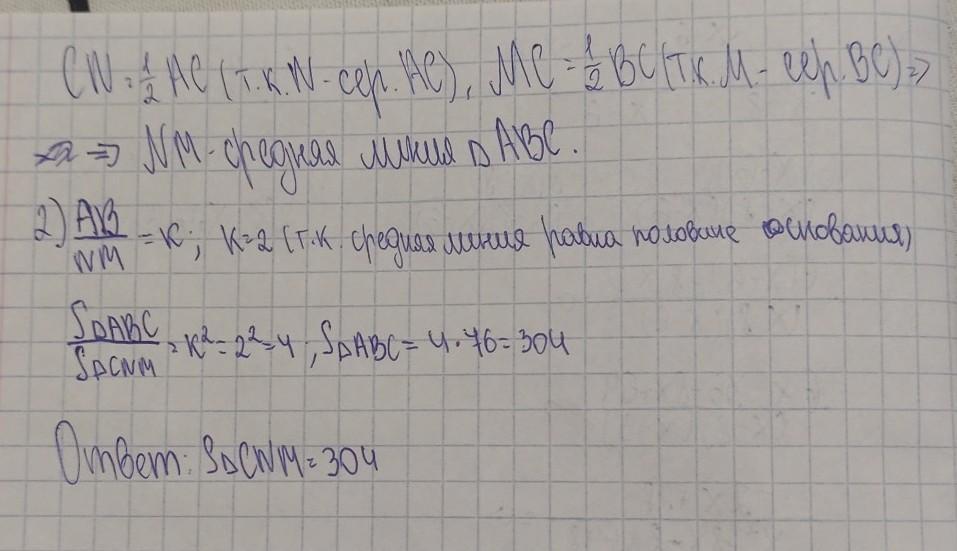 CN = 1/2 AC (т.к. N - сер. AC), MC = 1/2 BC (т.к. M - сер. BC) =>
=> NM - средняя линия △ ABC.
2) AB/NM = K; K=2 (т.к. средняя линия равна половине основания)
S△ABC/S△CNM = K² = 2² = 4; S△ABC = 4·76 = 304
Ответ: S△CNM = 304